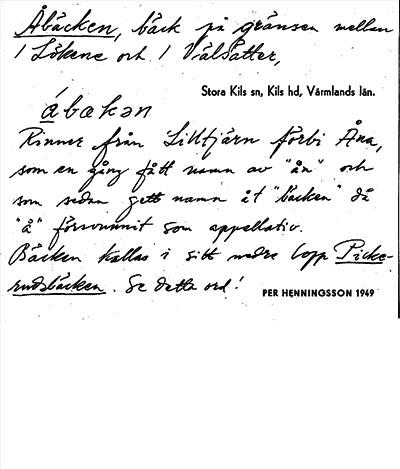 Åbäcken, bäck på gränsen mellan
1 Lökene och 1 Välsätter,
Stora Kils sn, Kils hd, Värmlands län.
åbakən
Rinner från Lilltjärn förbi Åna,
som en gång fått namn av "ån" och
som sedan gett namn åt "bäcken" då
"å" försvunnit som appellativ.
Bäcken kallas i sitt nedre lopp Picke-
rudsbäcken. Se detta ord!
PER HENNINGSSON 1949